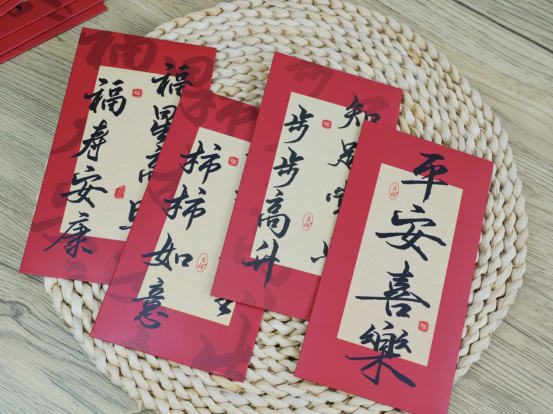 福星高
福寿安康
柿柿如意
知足常
步步高升
平安喜樂